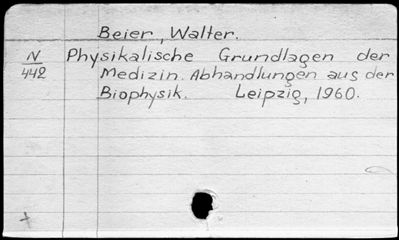 Beier, Walter.
N Physikalische Grundlagen der
442 Medizin. Abhandlungen aus der
Biophysik. Leipzig, 1960.
+